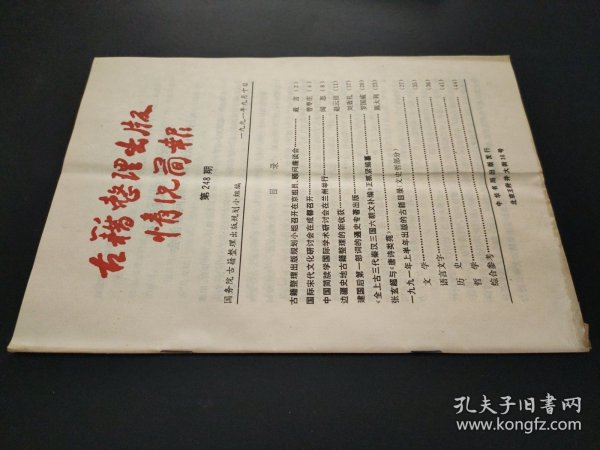 古籍整理出版
情况简报
第248期
国务院古籍整理出版规划小组编
一九九一年九月十日
目录
古籍整理出版规划小组召开在京组员、顾问座谈会
国际宋代文化研讨会在成都召开
中国简牍学国际学术研讨会在兰州举行
边疆史地古籍整理的新收获
建国后第一部词的通史专著出版
《全上古三代秦汉三国六朝文补编》正抓紧编纂
张玄超与《唐诗类苑》
一九九一年上半年出版的古籍目录(文史哲部分)
文学
语言文字
历史
哲学
综合参考
中华书局出版发行
北京王府井大街36号
孔夫子旧书网
www.kongfz.com